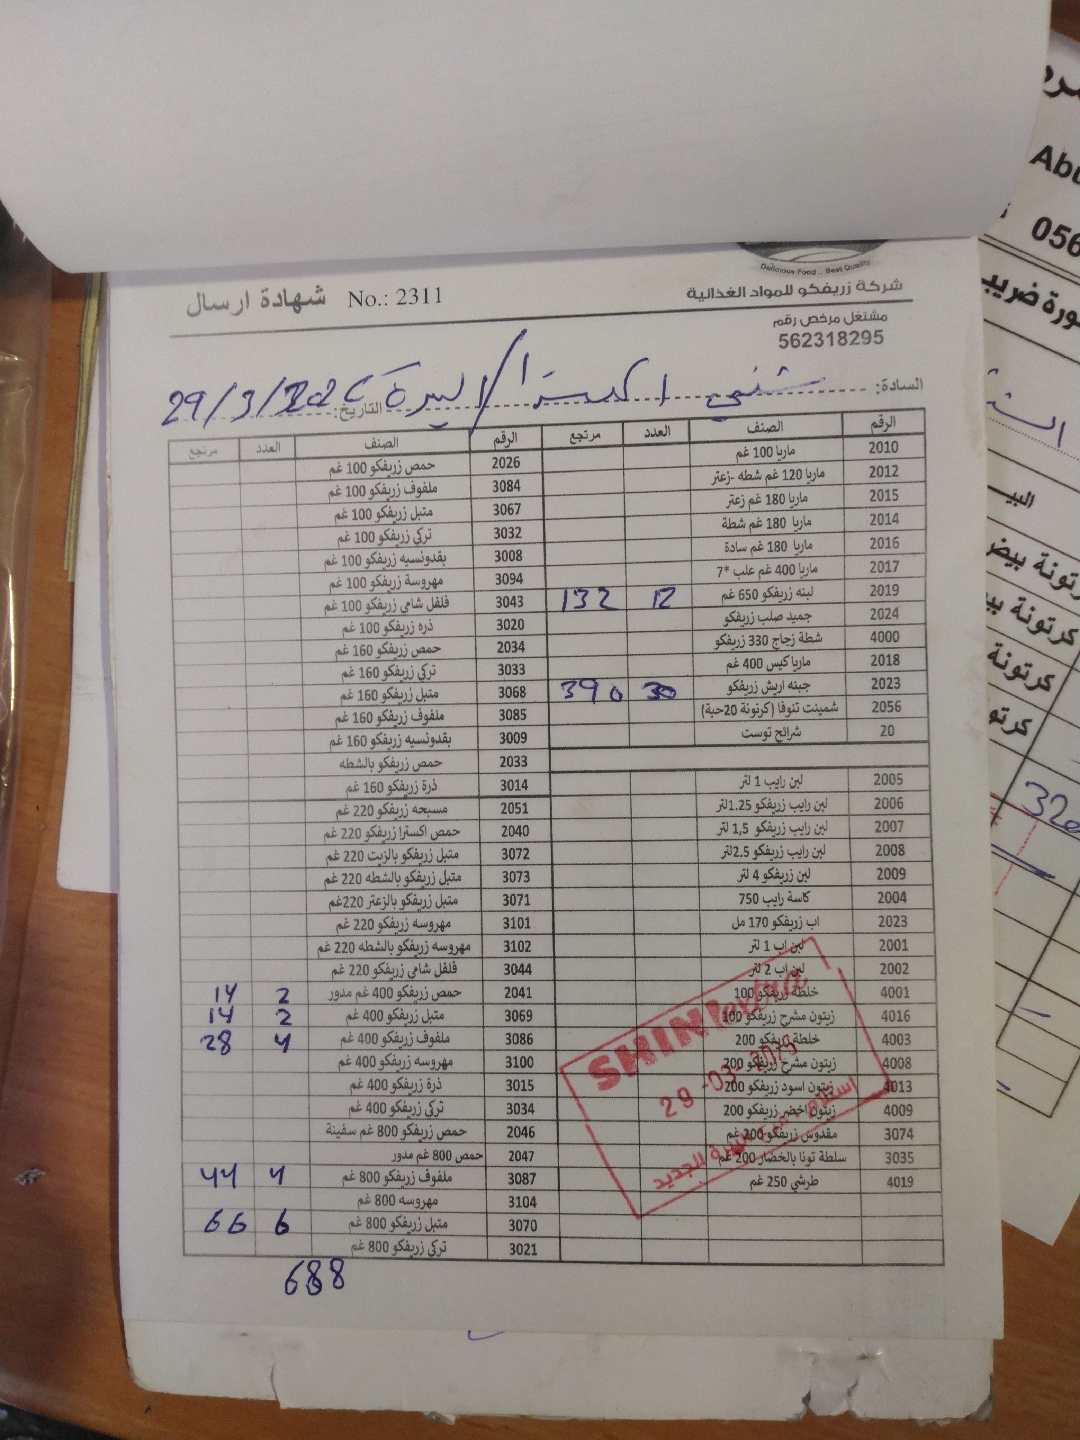 Delicious Food .. Best Quality
شركة زريفكو للمواد الغذائية
شهادة ارسال No.: 2311
مشتغل مرخص رقم
562318295
السادة: شني اكسترا / البيرة التاريخ: 29/3/202
الرقم الصنف العدد مرتجع الرقم الصنف العدد مرتجع
2010 ماريا 100 غم 2026 حمص زريفكو 100 غم
2012 ماريا 120 غم شطه -زعتر 3084 ملفوف زريفكو 100 غم
2015 ماريا 180 غم زعتر 3067 متبل زريفكو 100 غم
2014 ماريا 180 غم شطة 3032 تركي زريفكو 100 غم
2016 ماريا 180 غم سادة 3008 بقدونسيه زريفكو 100 غم
2017 ماريا 400 غم علب *7 3094 مهروسة زريفكو 100 غم
2019 لبنه زريفكو 650 غم 12 132 3043 فلفل شامي زريفكو 100 غم
2024 جميد صلب زريفكو 3020 ذره زريفكو 100 غم
4000 شطة زجاج 330 زريفكو 2034 حمص زريفكو 160 غم
2018 ماريا كيس 400 غم 3033 تركي زريفكو 160 غم
2023 جبنه اريش زريفكو 30 390 3068 متبل زريفكو 160 غم
2056 شمينت تنوفا (كرتونة 20حبة) 3085 ملفوف زريفكو 160 غم
20 شرائح توست 3009 بقدونسيه زريفكو 160 غم
2033 حمص زريفكو بالشطه
2005 لبن رايب 1 لتر 3014 ذرة زريفكو 160 غم
2006 لبن رايب زريفكو 1.25لتر 2051 مسبحه زريفكو 220 غم
2007 لبن رايب زريفكو 1,5 لتر 2040 حمص اكسترا زريفكو 220 غم
2008 لبن رايب زريفكو 2.5لتر 3072 متبل زريفكو بالزيت 220 غم
2009 لبن زريفكو 4 لتر 3073 متبل زريفكو بالشطه 220 غم
2004 كاسة رايب 750 3071 متبل زريفكو بالزعتر 220غم
2023 اب زريفكو 170 مل 3101 مهروسه زريفكو 220 غم
2001 لبن اب 1 لتر 3102 مهروسه زريفكو بالشطه 220 غم
2002 لبن اب 2 لتر 3044 فلفل شامي زريفكو 220 غم
4001 خلطة زريفكو 100 2041 حمص زريفكو 400 غم مدور 2 14
4016 زيتون مشرح زريفكو 100 3069 متبل زريفكو 400 غم 2 14
4003 خلطة زريفكو 200 3086 ملفوف زريفكو 400 غم 4 28
4008 زيتون مشرح زريفكو 200 3100 مهروسه زريفكو 400 غم
4013 زيتون اسود زريفكو 200 3015 ذرة زريفكو 400 غم
4009 زيتون اخضر زريفكو 200 3034 تركي زريفكو 400 غم
3074 مقدوس زريفكو 200 غم 2046 حمص زريفكو 800 غم سفينة
3035 سلطة تونا بالخضار 200 غم 2047 حمص 800 غم مدور
4019 طرشي 250 غم 3087 ملفوف زريفكو 800 غم 4 44
3104 مهروسه 800 غم
3070 متبل زريفكو 800 غم 6 66
3021 تركي زريفكو 800 غم
688
SHINI extra
29 -03-
الجديد
Abu
056
كرتونة بيض
كرتونة
320